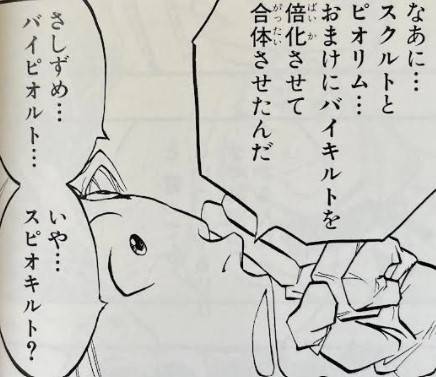 なあに…
スクルトと
ピオリム…
おまけにバイキルトを
倍化させて
ばいか
合体させたんだ
がったい
さしずめ…
バイピオルト…
いや…
スピオキルト？